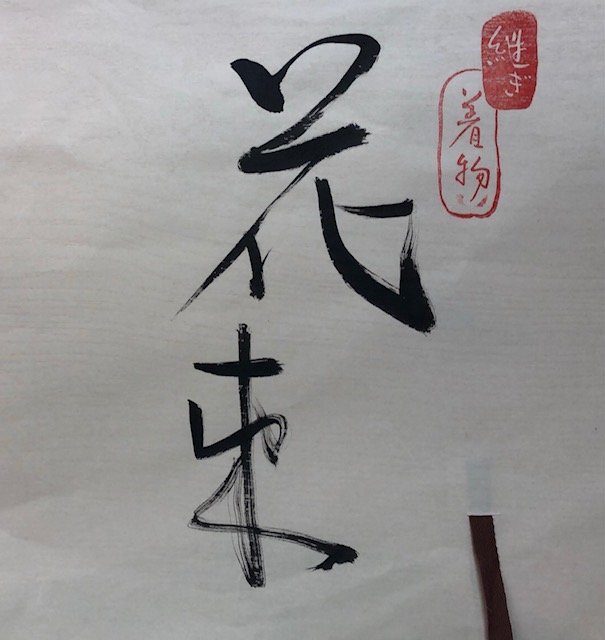 継ぎ
着物
花束